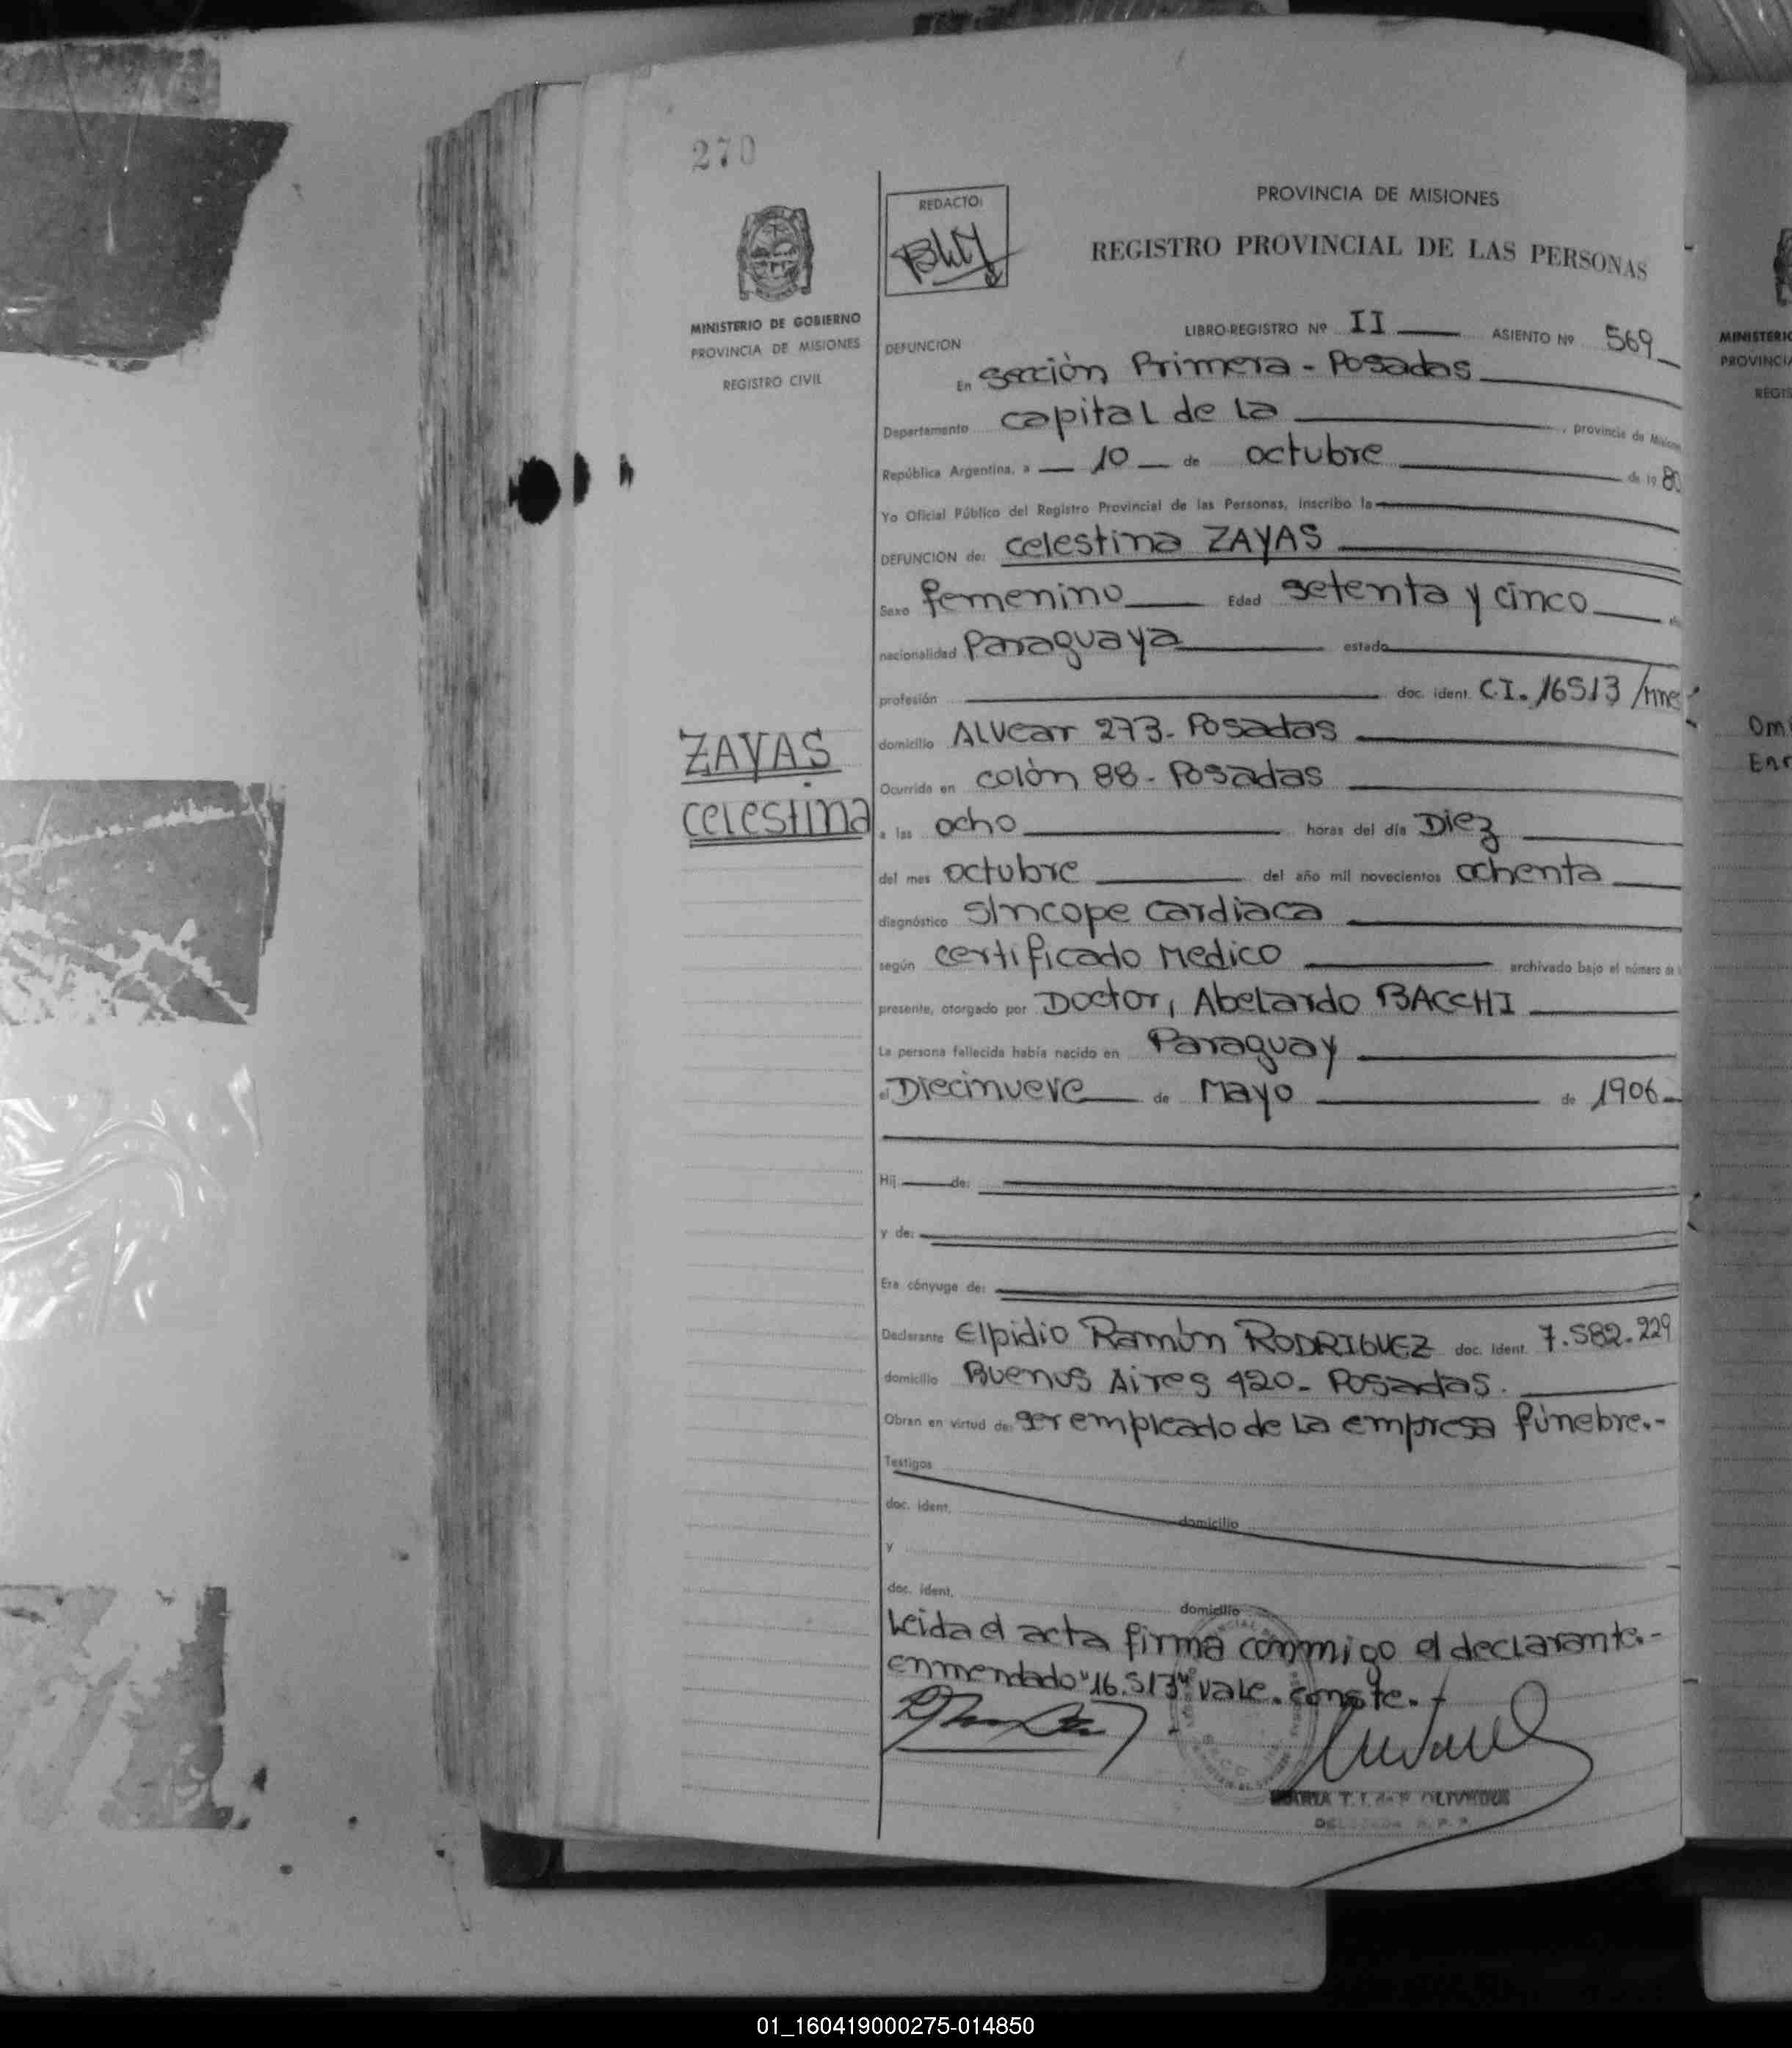 270
MINISTERIO DE GOBIERNO
PROVINCIA DE MISIONES
REGISTRO CIVIL
ZAYAS
celestina
REDACTO:
PROVINCIA DE MISIONES
REGISTRO PROVINCIAL DE LAS PERSONAS
LIBRO-REGISTRO Nº II ASIENTO Nº 569
DEFUNCION
En sección Primera - Posadas
Departamento capital de la , provincia de Misiones
República Argentina, a 10 de octubre de 1980
Yo Oficial Público del Registro Provincial de las Personas, inscribo la
DEFUNCION de: celestina ZAYAS
Sexo femenino Edad setenta y cinco
nacionalidad Paraguaya estado
profesión doc. ident. C.I. 16513/mnes
domicilio Alvear 273 - Posadas
Ocurrida en colón 88 - Posadas
a las ocho horas del día Diez
del mes octubre del año mil novecientos ochenta
diagnóstico síncope cardiaca
según certificado Medico archivado bajo el número de l
presente, otorgado por Doctor, Abelardo BACCHI
La persona fallecida había nacido en Paraguay
el Diecinueve de Mayo de 1906
Hij de:
y de:
Era cónyuge de:
Declarante Elpidio Ramón RODRIGUEZ doc. ident. 7.582.229
domicilio Buenos Aires 420 - Posadas.
Obran en virtud de: ser empleado de la empresa fúnebre.-
Testigos
doc. ident. domicilio
y
doc. ident. domicilio
Leida el acta firma conmigo el declarante.-
enmendado "16.513" vale. conste.-
MARIA T. I. de P. OLIVEIRA
MINISTERIO
PROVINCIA
REGIS
Om
Enr
01_160419000275-014850